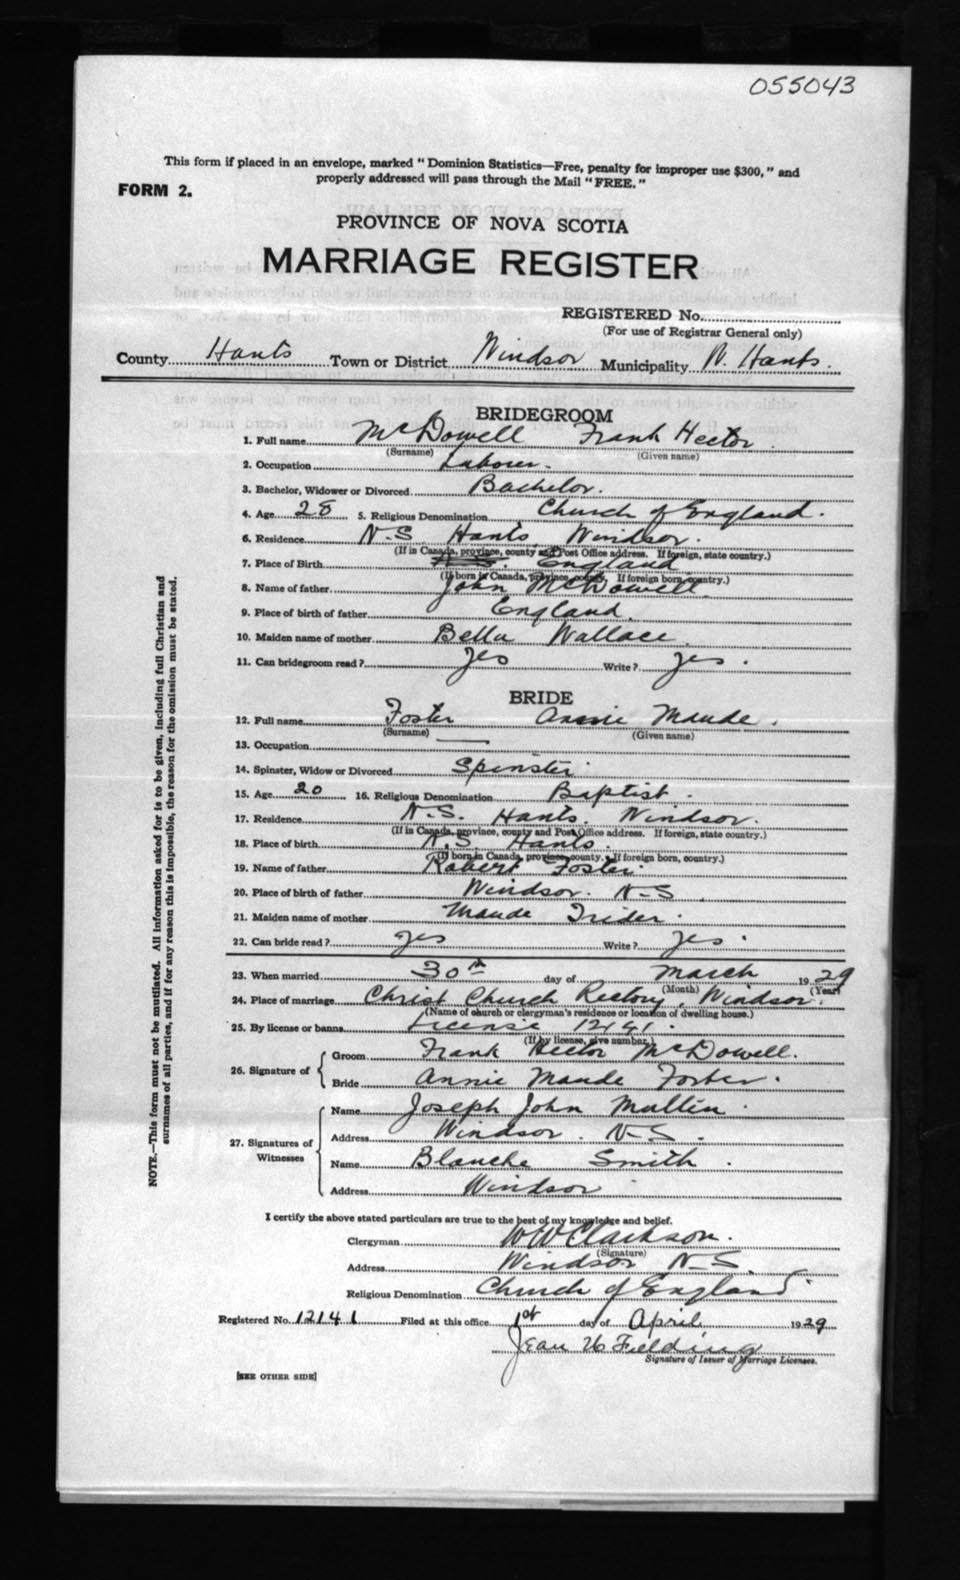 055043
This form if placed in an envelope, marked "Dominion Statistics—Free, penalty for improper use $300," and
properly addressed will pass through the Mail "FREE."
FORM 2.
PROVINCE OF NOVA SCOTIA
MARRIAGE REGISTER
REGISTERED No.
(For use of Registrar General only)
County Hants Town or District Windsor Municipality W. Hants.
BRIDEGROOM
1. Full name McDowell Frank Hector.
(Surname) (Given name)
2. Occupation Laborer.
3. Bachelor, Widower or Divorced Bachelor.
4. Age 28 5. Religious Denomination Church of England.
6. Residence N.S. Hants, Windsor.
(If in Canada, province, county and Post Office address. If foreign, state country.)
7. Place of Birth N.S. England
(If born in Canada, province, county. If foreign born, country.)
8. Name of father John McDowell
9. Place of birth of father England.
10. Maiden name of mother Bella Wallace
11. Can bridegroom read? yes Write? yes.
BRIDE
12. Full name Foster Annie Maude.
(Surname) (Given name)
13. Occupation —
14. Spinster, Widow or Divorced Spinster
15. Age 20 16. Religious Denomination Baptist.
17. Residence N.S. Hants. Windsor.
(If in Canada, province, county and Post Office address. If foreign, state country.)
18. Place of birth N.S. Hants.
(If born in Canada, province, county. If foreign born, country.)
19. Name of father Robert Foster
20. Place of birth of father Windsor. N-S
21. Maiden name of mother Maude Trider.
22. Can bride read? yes Write? yes.
23. When married 30th day of March 1929
(Month) (Year)
24. Place of marriage Christ Church Rectory, Windsor.
(Name of church or clergyman's residence or location of dwelling house.)
25. By license or banns License 12141.
(If by license, give number.)
26. Signature of { Groom Frank Hector McDowell.
Bride Annie Maude Foster.
27. Signatures of Witnesses { Name Joseph John Mullin.
Address Windsor. N-S.
Name Blanche Smith.
Address Windsor
I certify the above stated particulars are true to the best of my knowledge and belief.
Clergyman WW Clarkson.
(Signature)
Address Windsor N-S.
Religious Denomination Church of England.
Registered No. 12141 Filed at this office 1st day of April 1929
Jean W Fielding
Signature of Issuer of Marriage Licenses.
[SEE OTHER SIDE]
NOTE.—This form must not be mutilated. All information asked for is to be given, including full Christian and
surnames of all parties, and if for any reason this is impossible, the reason for the omission must be stated.